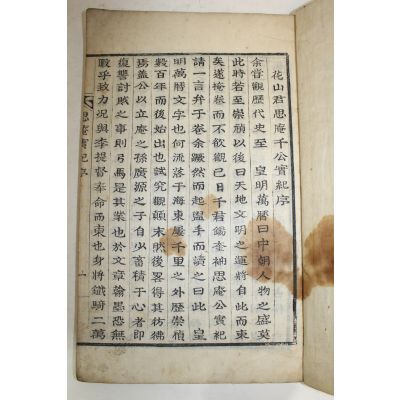 花山君思庵千公實紀序
余嘗觀歷代史至　皇明萬曆曰中朝人物之盛莫
此時若至崇禎以後曰天地文明之運將自此而東
矣遂掩卷而不欲觀已日千君錫奎袖思庵實紀
請一言弁于卷余蹶然而起盥手而讀之曰此　皇
明萬曆文字也何流落于海東屢千里之外歷崇禎
數百年而後始出也試究觀顛末然後畧得其彷彿
焉盖公以立庵之孫廣源之子自少蓄積于心者即
復讐討賊之事則弓馬是其業也於文章翰墨恐無
暇乎致力况與李提督奉命而東也身將鐵騎二萬
思庵實紀序
一